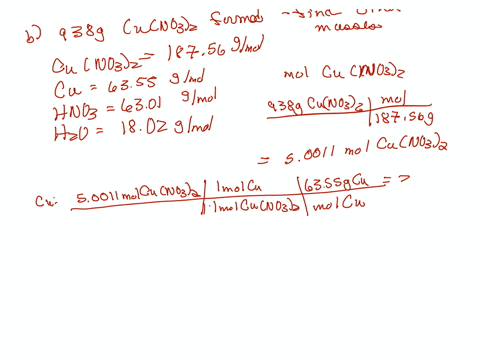 b) 938g Cu(NO3)2 formed - find
masses
Cu(NO3)2 = 187.56 g/mol
Cu = 63.55 g/mol
HNO3 = 63.01 g/mol
H2O = 18.02 g/mol
mol Cu(NO3)2
938g Cu(NO3)2 | mol
| 187.56g
= 5.0011 mol Cu(NO3)2
Cu: 5.0011 mol Cu(NO3)2 | 1 mol Cu | 63.55g Cu = ?
| 1 mol Cu(NO3)2 | mol Cu